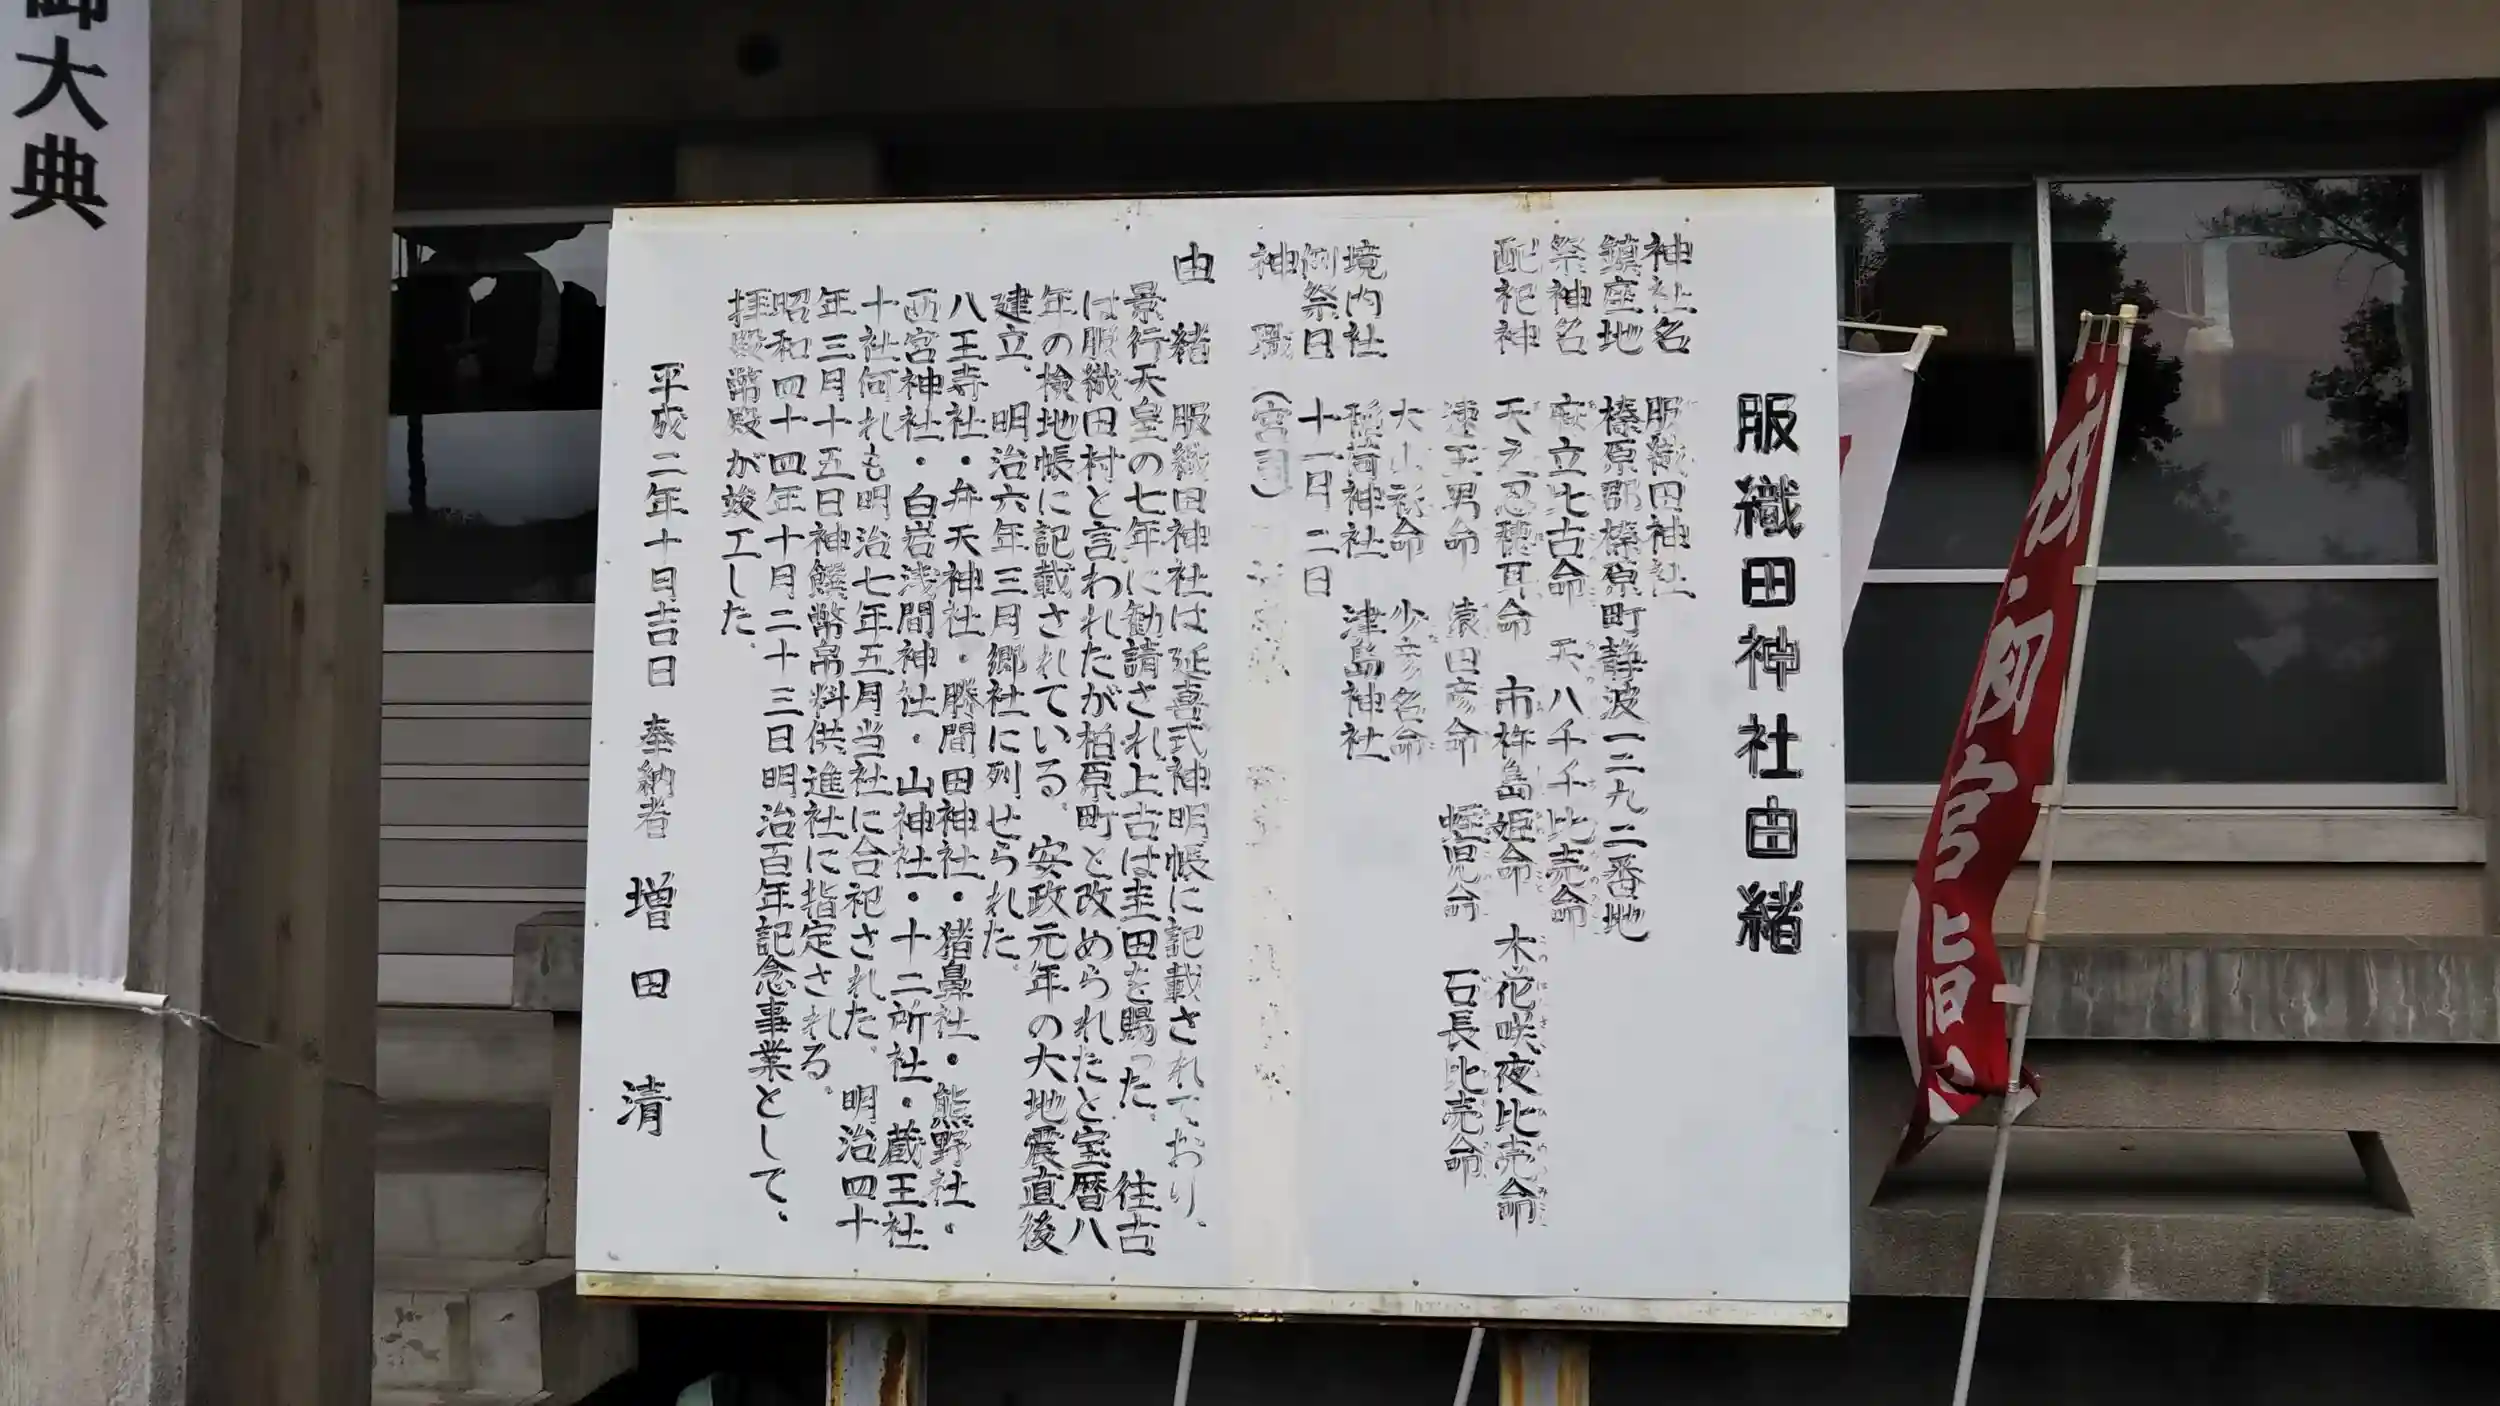 服織田神社由緒
神社名 服織田神社
鎮座地 榛原郡榛原町静波一二九二番地
祭神名 麻立比古命 天八千千比売命
配祀神 天之忍穂耳命 市杵島姫命 木花咲夜比売命
速玉男命 猿田彦命 蛭児命 石長比売命
大山祇命 少彦名命
境内社 稲荷神社 津島神社
例祭日 十一月二日
神職 (宮司)
由緒 服織田神社は延喜式神明帳に記載されており、
景行天皇の七年に勧請され上古は圭田を賜った。 往古
は服織田村と言われたが柏原町と改められたと宝暦八
年の検地帳に記載されている。安政元年の大地震直後
建立、明治六年三月郷社に列せられた。
八王寺社・弁天神社・勝間田神社・猪鼻社・熊野社・
西宮神社・白岩浅間神社・山神社・十二所社・蔵王社
十社何れも明治七年五月当社に合祀された。 明治四十
年三月十五日神饌幣帛料供進社に指定される。
昭和四十四年十月二十三日明治百年記念事業として、
拝殿幣殿が竣工した。
平成二年十月吉日 奉納者 増田 清
御大典